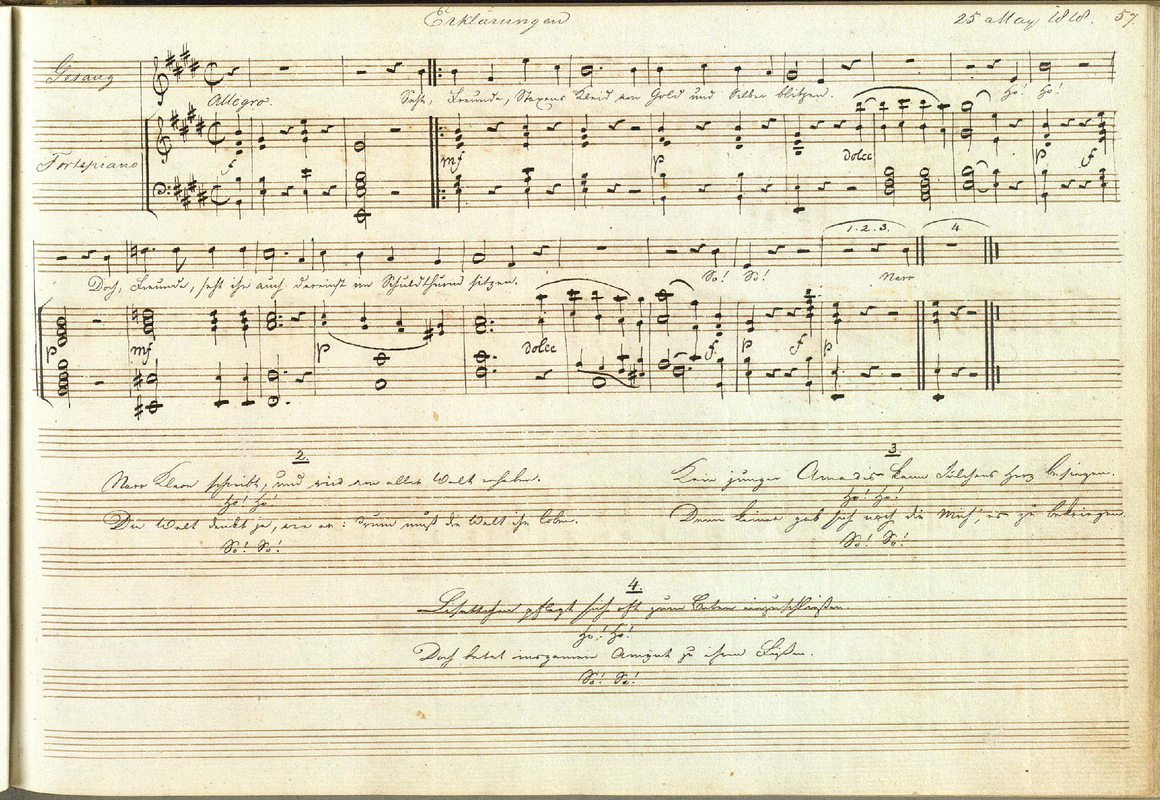 Erklärungen
25 May 1818. 57.
Gesang
Allegro.
Seht, Freunde, Staxens Kleid von Gold und Silber blitzen. Ho! Ho!
Fortepiano
f mf p dolce p f
1. 2. 3. 4.
Doch, Freunde, seht ihr auch dereinst im Schuldthurm sitzen. So! So! Narr
p mf p dolce f p f p
2.
Narr Kleon schreibt, und wird von aller Welt erhoben.
Ho! Ho!
Die Welt denkt ja, wie er: drum muß die Welt ihn loben.
So! So!
3
Kein junger Amadis kann Julchens Herz besiegen.
Ho! Ho!
Denn keiner gab sich noch die Müh', es zu bekriegen.
So! So!
4.
Lisettchen pflegt sich oft zum Beten einzuschließen.
Ho! Ho!
Doch betet insgemein Amynt zu ihren Füßen.
So! So!